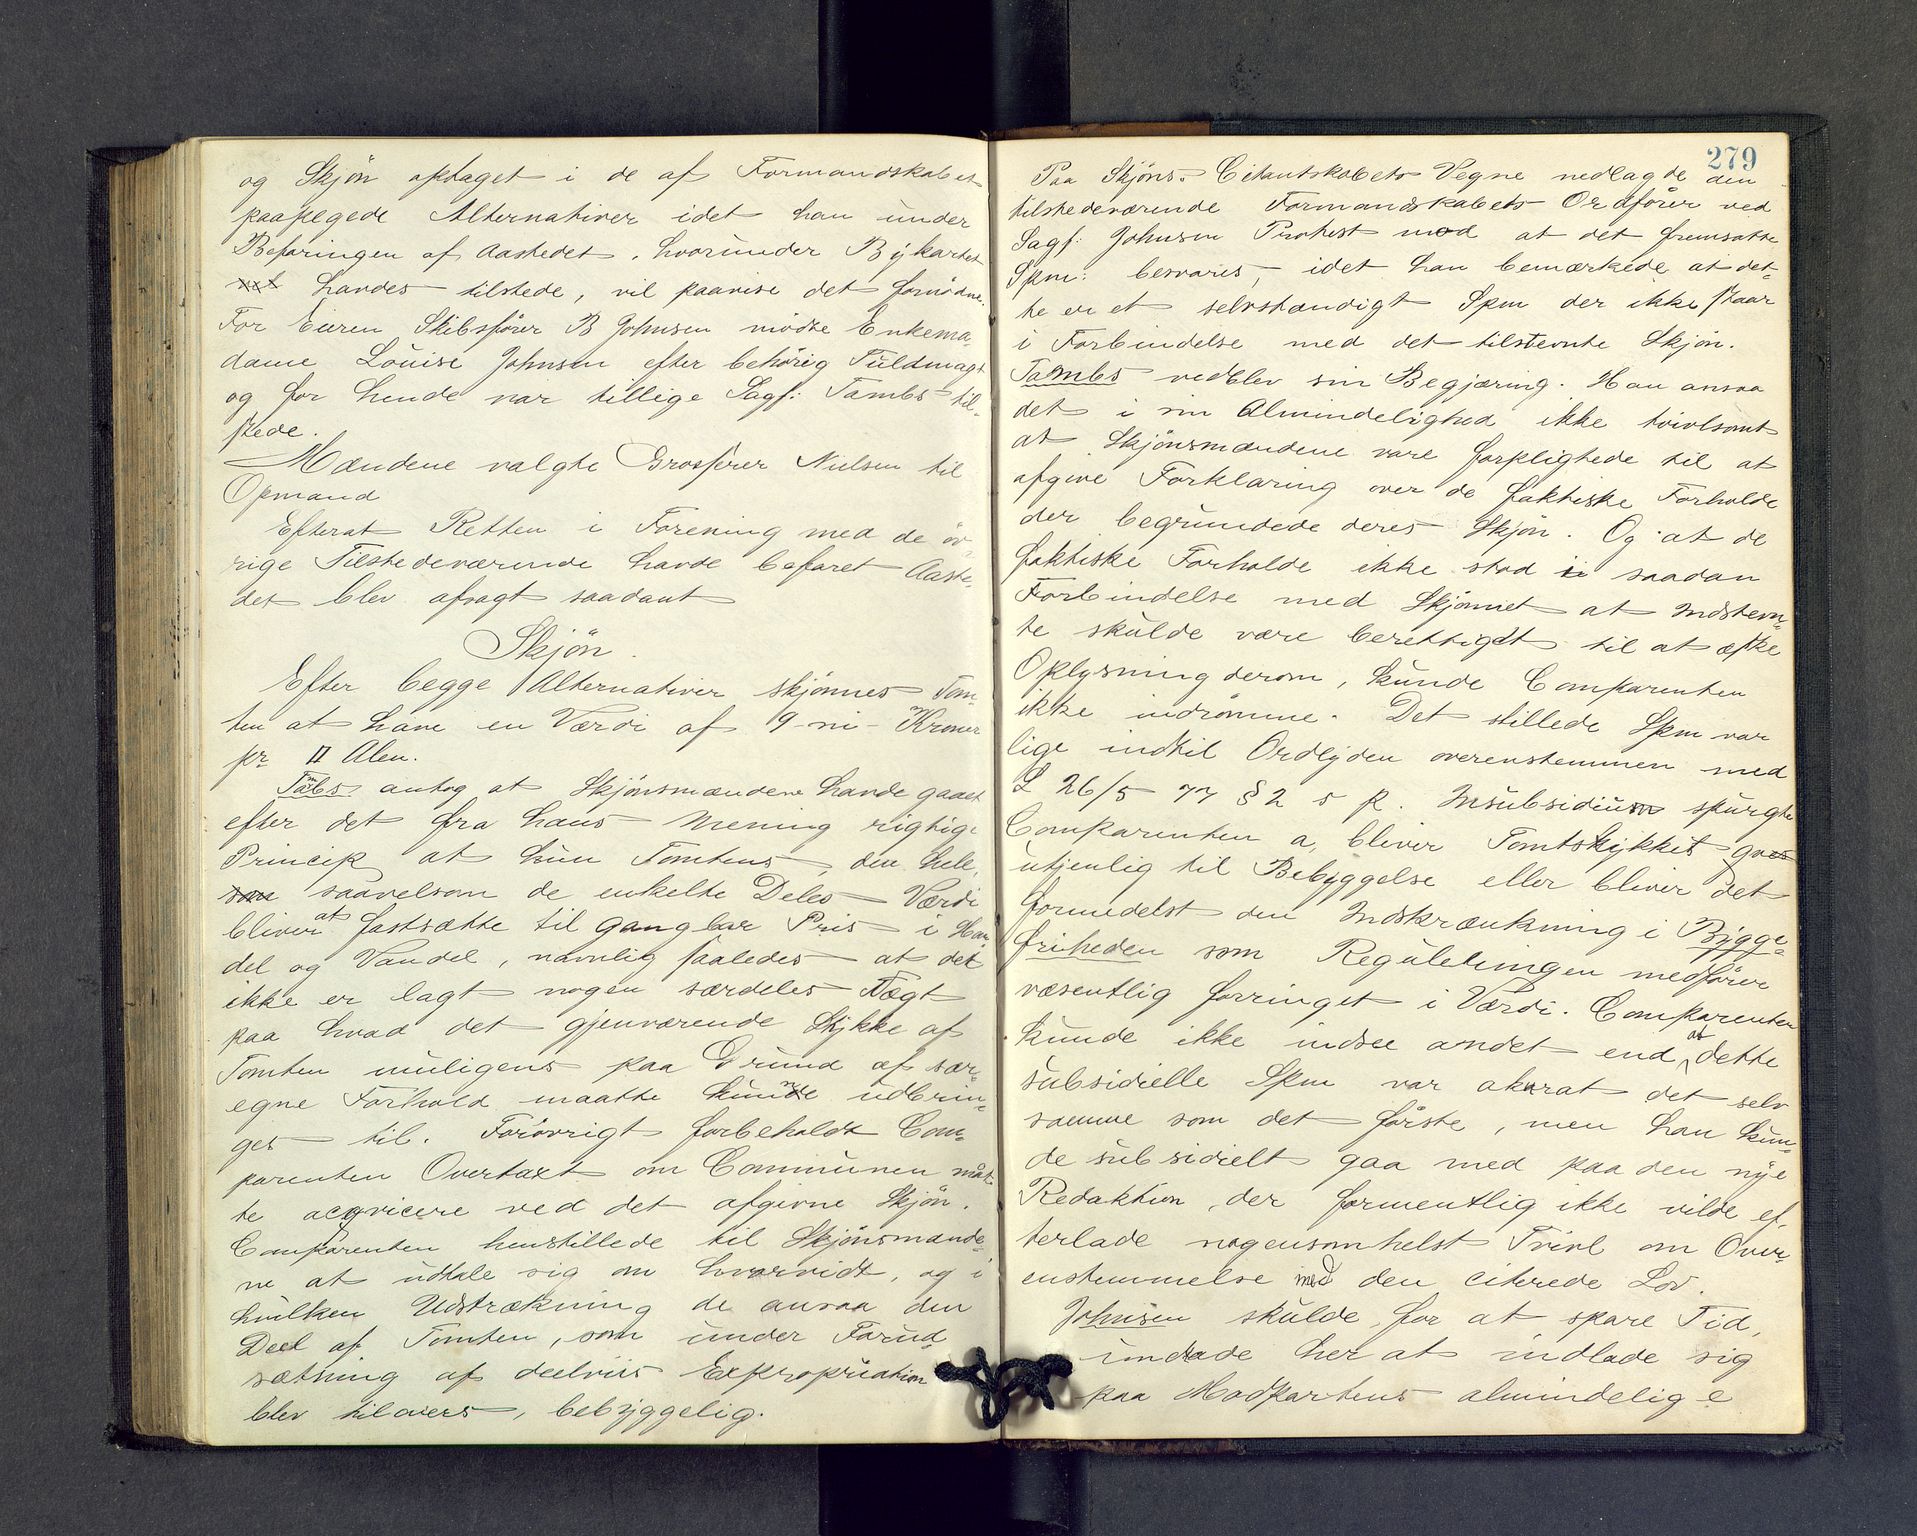 og Skjøn optaget i de af Formandskabet
paapegede Alternativer idet han under
Befaringen af Aastedet, hvorunder Bykartet
havdes tilstede, vil paavise det fornødne.
For Eieren Skibsfører B Johnsen mødte Enkema-
dame Louise Johnsen efter behørig Fuldmagt
og for hende var tillige Sagf: Tambs til-
stede.
Mændene valgte Grosserer Nielsen til
Opmand
Efterat Retten i Forening med de øv-
rige Tilstedeværende havde befaret Aaste-
det blev afsagt saadant
Skjøn.
Efter begge Alternativer skjønnes Tom-
ten at have en Værdi af 9 - ni - Kroner
pr □ Alen.
Tambs antog at Skjønsmændene havde gaaet
efter det fra hans Mening rigtige
Princip at kun Tomtens, den hele,
saavelsom de enkelte Deles Værdi
bliver at fastsætte til gangbar Pris i Han-
del og Vandel, navnlig saaledes at det
ikke er lagt nogen særdeles Vægt
paa hvad det gjenværende Stykke af
Tomten muligens paa Grund af sær-
egne Forhold maatte kunne udbrin-
ges til. Forøvrigt forbeholdt Com-
parenten Overtaxt om Communen maat-
te acqvicere ved det afgivne Skjøn.
Comparenten henstillede til Skjønsmænde-
ne at udtale sig om hvorvidt, og i
hvilken Udstrækning de ansaa den
Deel af Tomten, som under Forud-
sætning af deelviis Expropriation
blev tilovers, bebyggelig.
279
Paa Skjøns-Citantskabets Vegne nedlagde den
tilstedeværende Formandskabets Ordfører ved
Sagf: Johnsen Protest mod at det fremsatte
Spm: besvares, idet han bemærkede at det-
te er et selvstændigt Spm der ikke staar
i Forbindelse med det tilstevnte Skjøn.
Tambs vedblev sin Begjæring. Han ansaa
det i sin Almindelighed ikke tvivlsomt
at Skjønsmændene vare forpligtede til at
afgive Forklaring over de faktiske Forholde
der begrundede deres Skjøn. Og at de
faktiske Forholde ikke stod i saadan
Forbindelse med Skjønnet at Indstevn-
te skulde være berettiget til at æske
Oplysning derom, kunde Comparenten
ikke indrømme. Det stillede Spm var
lige indtil Ordlyden overenstemmen med
L 26/5 77 § 2 5 p. Insubsidium spurgte
Comparenten a, bliver Tomtstykket
utjenlig til Bebyggelse eller bliver det
formedelst den Indskrænkning i Bygge-
friheden som Reguleringen medfører
væsentlig forringet i Værdi. Comparenten
kunde ikke indsee andet end at dette
subsidielle Spm var akurat det selv
samme som det første, men han kun-
de subsidielt gaa med paa den nye
Redaktion, der formentlig ikke vilde ef-
terlade nogensomhelst Tvivl om Over-
enstemmelse med den citerede Lov.
Johnsen skulde, for at spare Tid,
undlade her at indlade sig
paa Modpartens almindelige